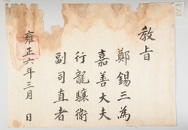 教旨
鄭錫三爲
嘉善大夫
行龍驤衛
副司直者
雍正六年三月 日